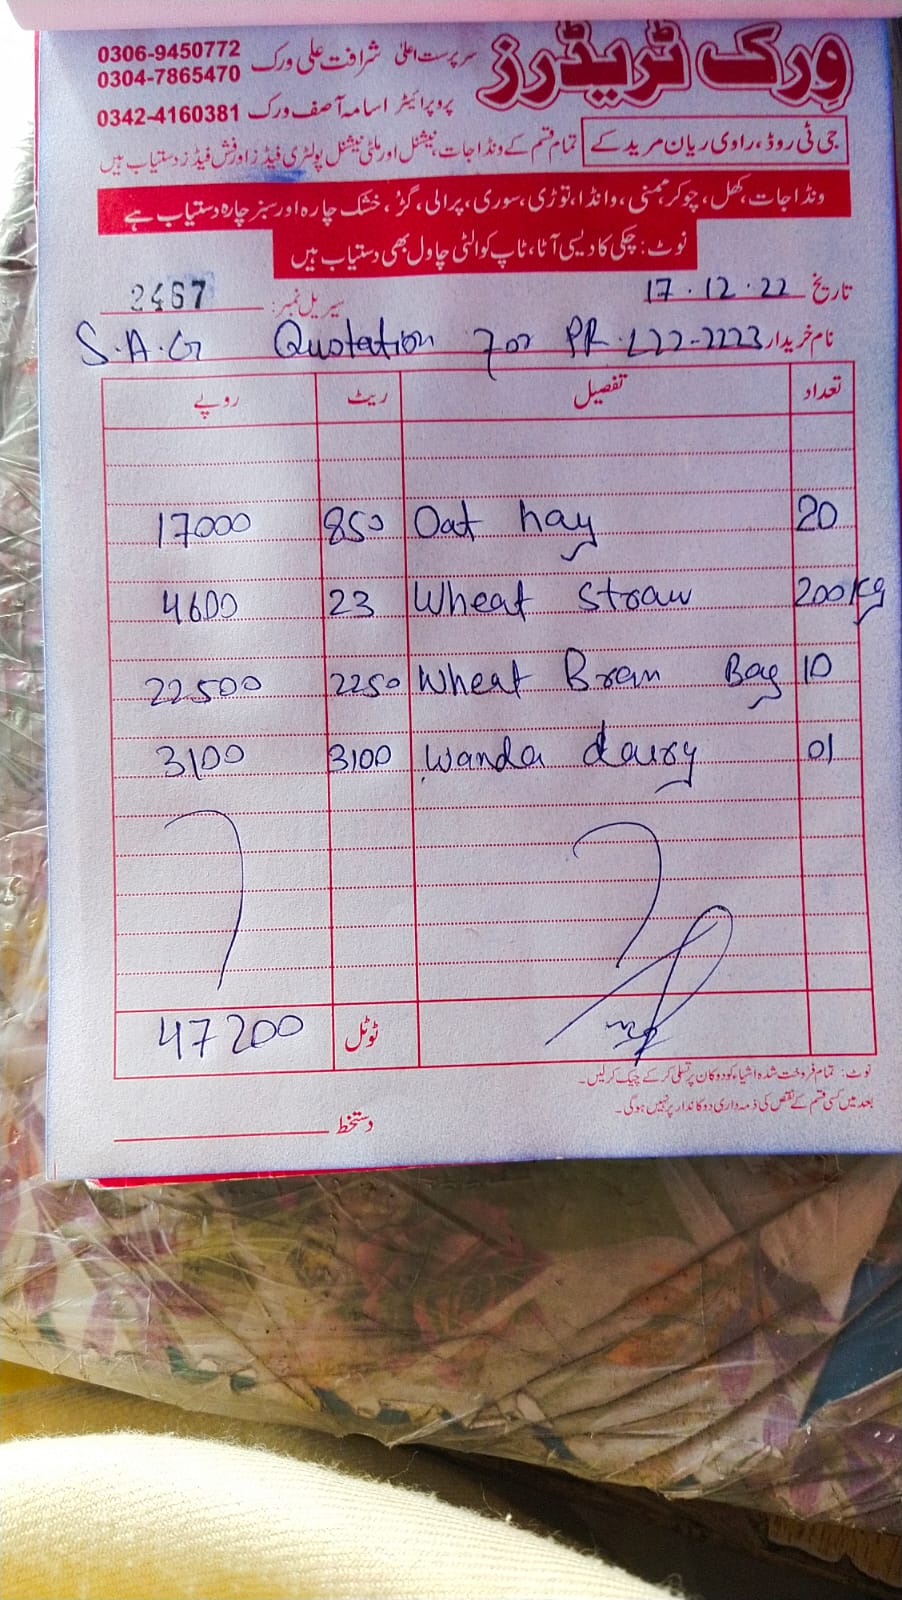 ورک ٹریڈرز
سرپرست اعلیٰ شرافت علی ورک 0306-9450772
0304-7865470
پروپرائیٹر اسامہ آصف ورک 0342-4160381
جی ٹی روڈ، راوی ریان مریدکے
تمام قسم کے ونڈا جات، نیشنل اور ملٹی نیشنل پولٹری فیڈز اور فش فیڈز دستیاب ہیں
ونڈا جات، کھل، چوکر، ممنی، وانڈا، توڑی، سوری، پرالی، گڑ، خشک چارہ اور سبز چارہ دستیاب ہے
نوٹ: چکی کا دیسی آٹا، ٹاپ کوالٹی چاول بھی دستیاب ہیں
تاریخ 17.12.22 سیریل نمبر: 2467
نام خریدار S.A.G Quotation For PR.L22-2223
تعداد تفصیل ریٹ روپے
20 Oat hay 850 17000
200 Kg Wheat Straw 23 4600
10 Wheat Bran Bag 2250 22500
01 Wanda dairy 3100 3100
ٹوٹل 47200
نوٹ: تمام فروخت شدہ اشیاء کو دوکان پر تسلی کر کے چیک کر لیں۔
بعد میں کسی قسم کے نقص کی ذمہ داری دوکاندار پر نہیں ہو گی۔
دستخط